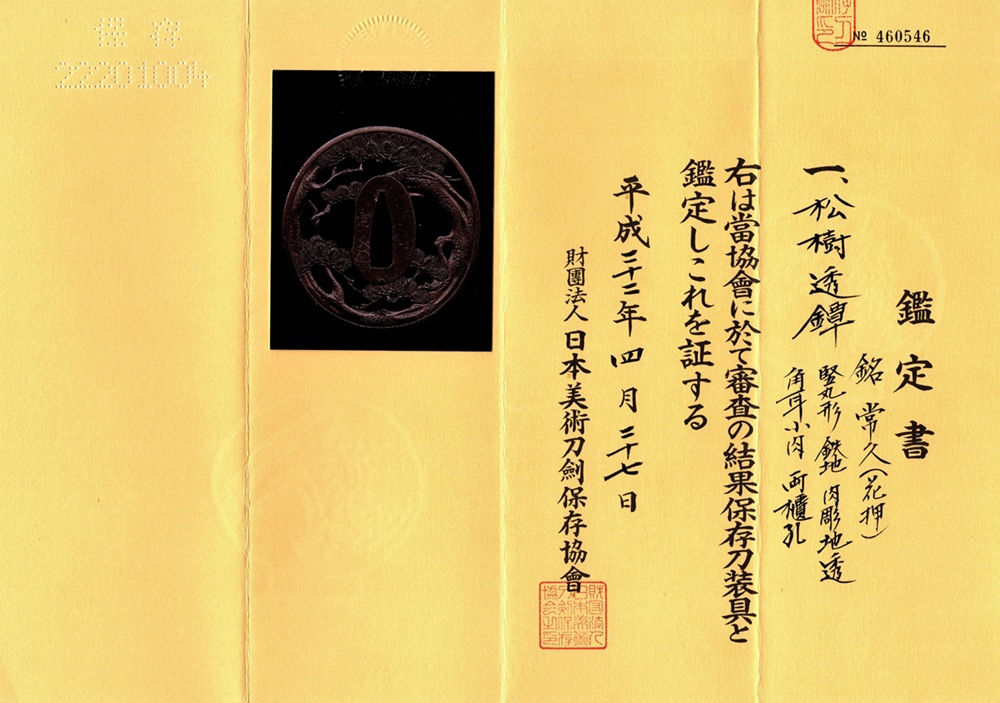 保存
22201004
№ 460546
鑑定書
一、松樹透鐔
銘 常久(花押)
竪丸形 鉄地 肉彫地透
角耳小肉 両櫃孔
右は當協會に於て審査の結果保存刀装具と
鑑定しこれを証する
平成二十二年四月二十七日
財團法人 日本美術刀劍保存協會